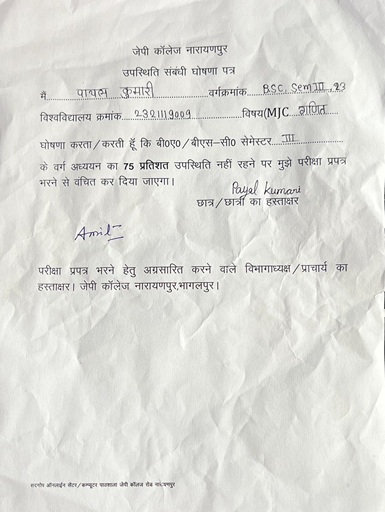 जेपी कॉलेज नारायणपुर
उपस्थिति संबंधी घोषणा पत्र
मैं पायल कुमारी वर्गक्रमांक BSC Sem III, 23
विश्वविद्यालय क्रमांक 2321119009 विषय(MJC गणित
घोषणा करता/करती हूँ कि बी०ए०/बीएस-सी० सेमेस्टर III
के वर्ग अध्ययन का 75 प्रतिशत उपस्थिति नहीं रहने पर मुझे परीक्षा प्रपत्र
भरने से वंचित कर दिया जाएगा।
Payel kumari
छात्र/छात्री का हस्ताक्षर
परीक्षा प्रपत्र भरने हेतु अग्रसारित करने वाले विभागाध्यक्ष/प्राचार्य का
हस्ताक्षर। जेपी कॉलेज नारायणपुर,भागलपुर।
ऑनलाईन सेंटर/कम्प्यूटर पाठशाला जेपी कॉलेज रोड नारायणपुर